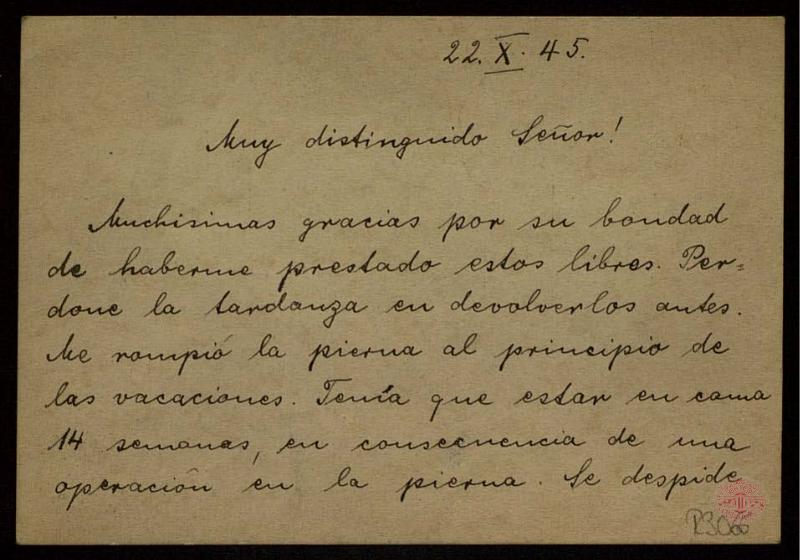 22. X. 45.
Muy distinguido Señor!
Muchisimas gracias por su bondad
de haberme prestado estos libres. Per=
done la tardanza en devolverlos antes.
Me rompió la pierna al principio de
las vacaciones. Tenía que estar en cama
14 semanas, en consecuencia de una
operación en la pierna. Se despide
R306